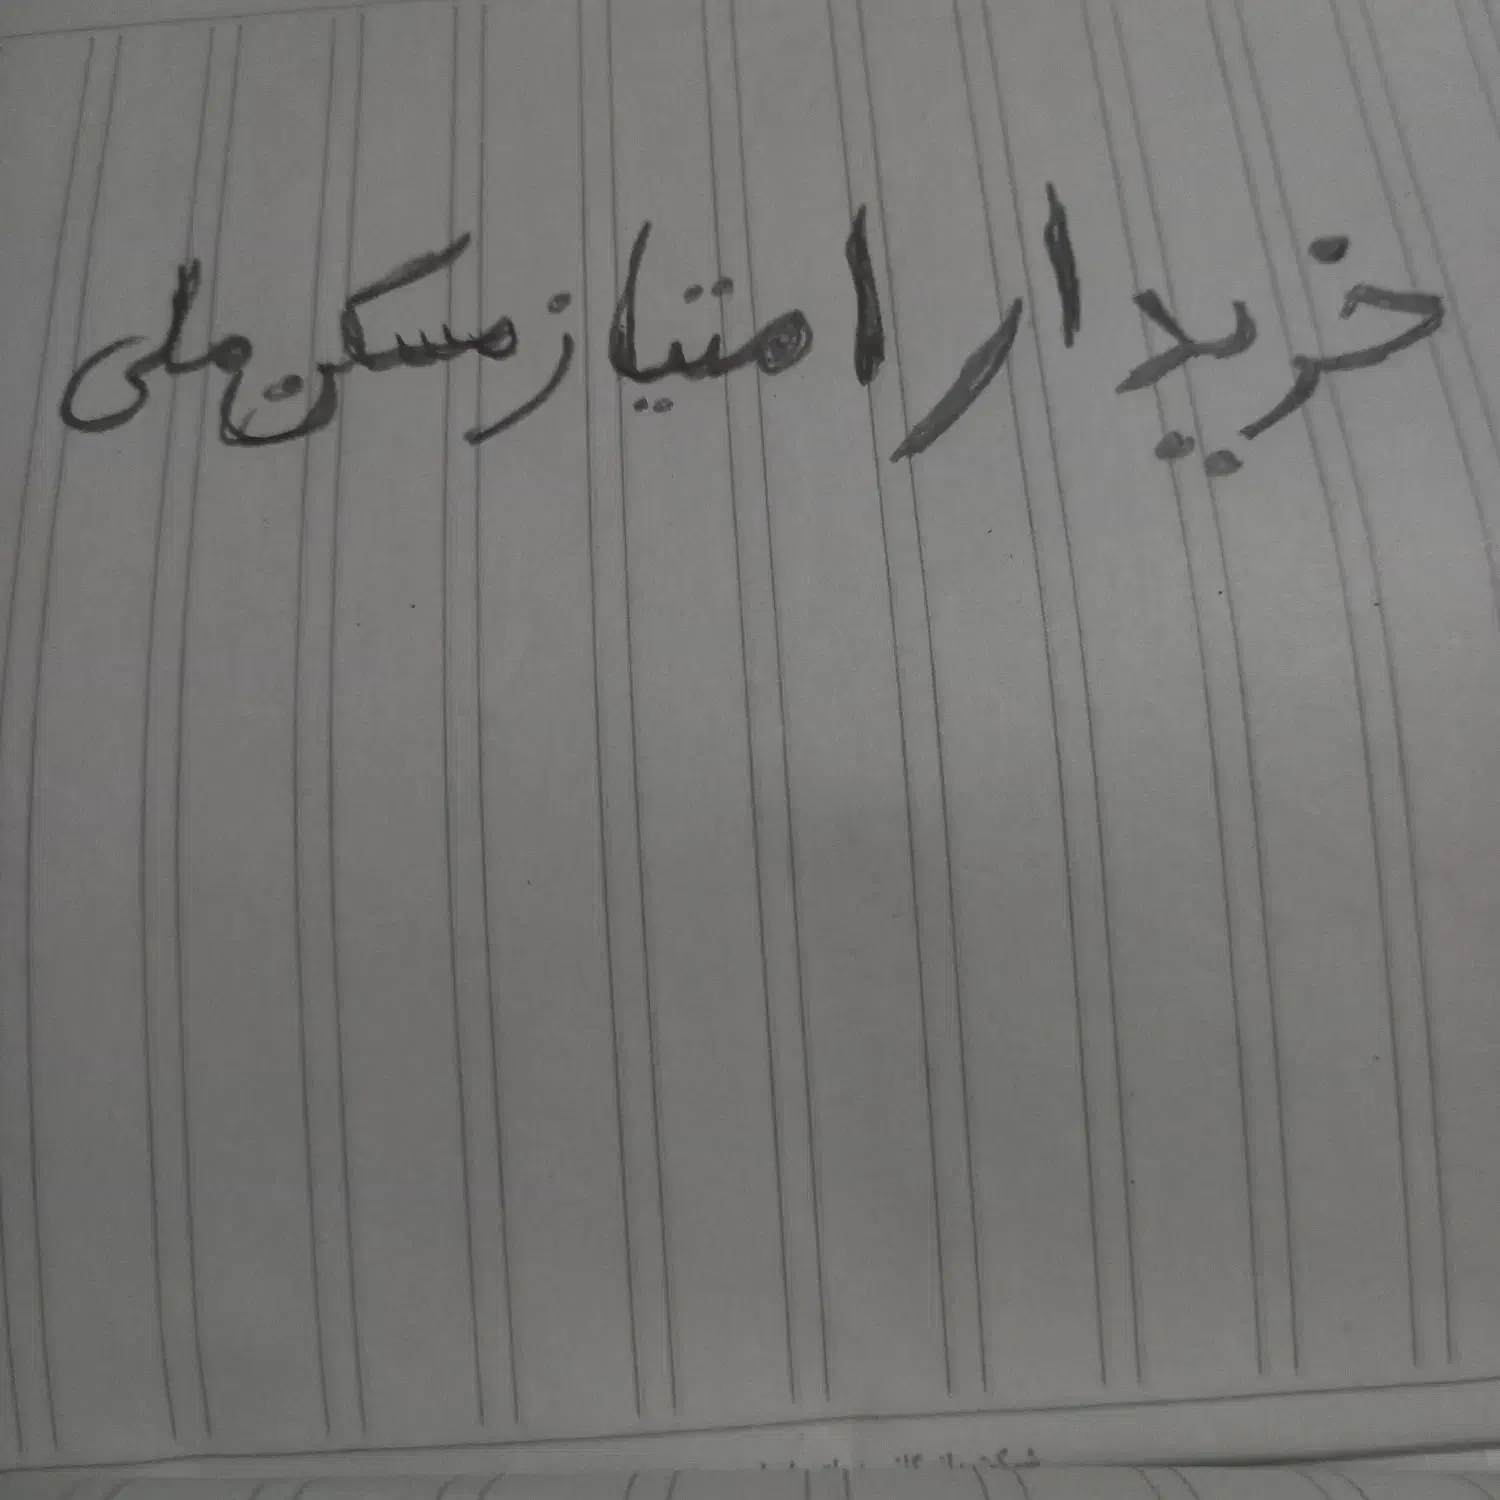 خریدار امتیاز مسکن ملی